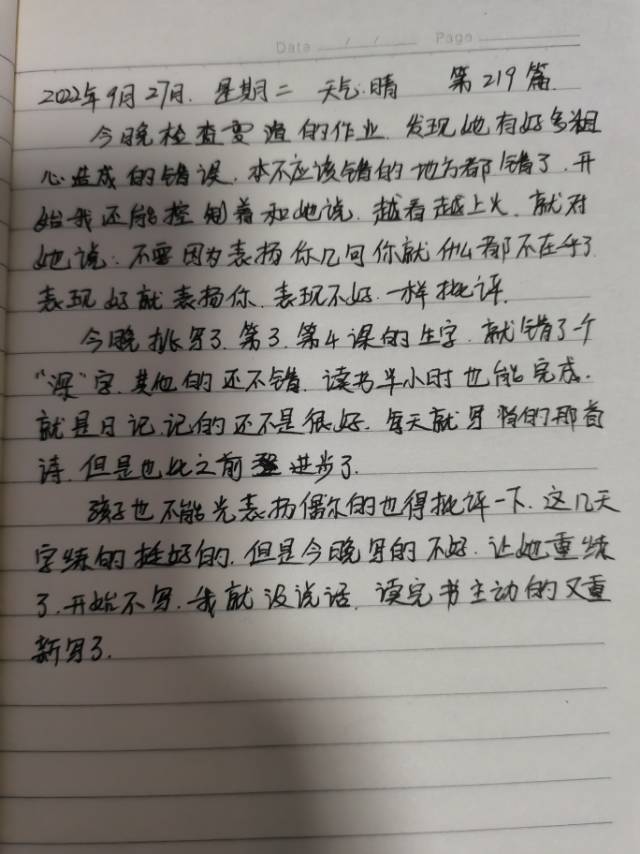 Date / / Page
2022年9月27日. 星期二 天气:晴 第219篇.
今晚检查雯的作业. 发现她有好多粗
心造成的错误. 本不应该错的地方都错了. 开
始我还能控制着和她说. 越看越上火. 就对
她说: 不要因为表扬你几句你就什么都不在乎了.
表现好就表扬你. 表现不好. 一样批评.
今晚挑写了. 第3. 第4课的生字. 就错了一个
“深”字. 其他的还不错. 读书半小时也能完成.
就是日记. 记的还不是很好. 每天就写 的那首
诗. 但是也比之前 进步了.
孩子也不能光表扬偶尔的也得批评一下. 这几天
字练的挺好的. 但是今晚写的不好. 让她重练
了. 开始不写. 我就没说话. 读完书主动的又重
新写了.